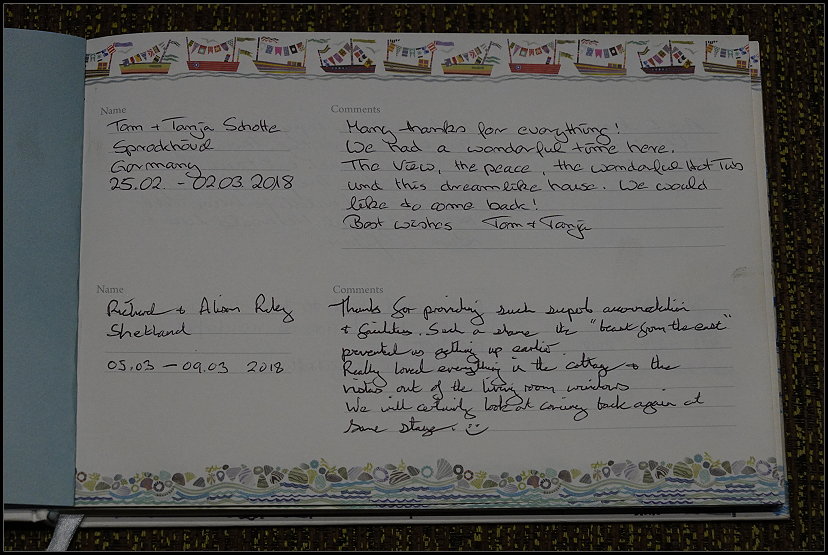 Name
Tom + Tanja Scholte
Sprockhövel
Germany
25.02. - 02.03.2018
Comments
Many thanks for everything!
We had a wonderful time here.
The View, the peace, the wonderful Hot Tub
und this dreamlike house. We would
like to come back!
Best wishes Tom + Tanja
Name
Richard + Alison
Shetland
05.03 - 09.03 2018
Comments
Thanks for providing such superb accommodation
+ facilities. Such a shame the "beast from the east"
prevented us getting up earlier.
Really loved everything in the cottage + the
views out of the living room windows.
We will certainly look at coming back again at
some stage. :)